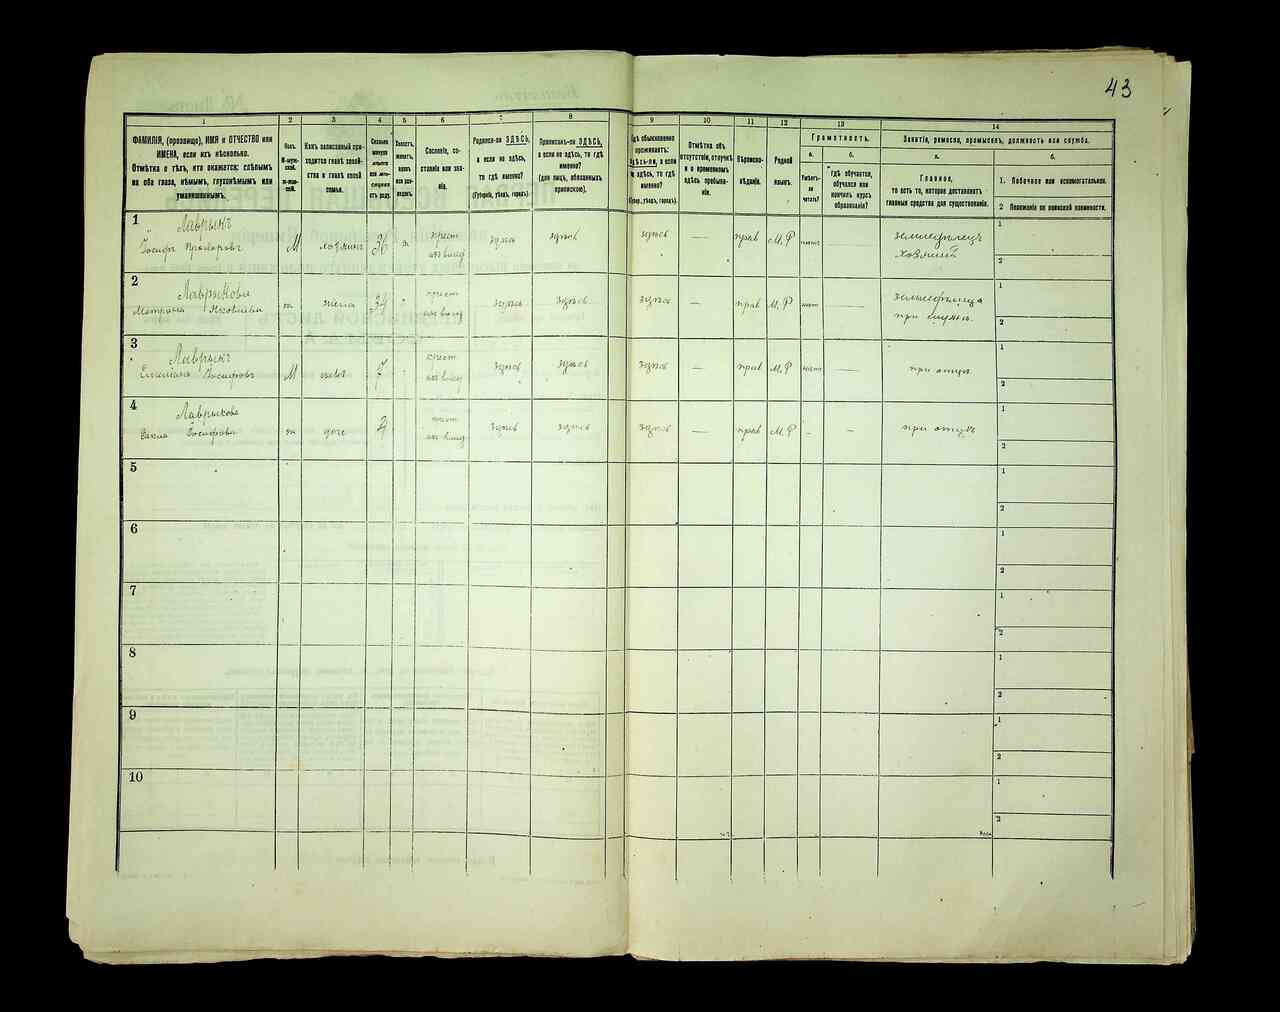 43
1
2
3
4
5
6
7
8
9
10
11
12
13
14
ФАМИЛІЯ, (прозвище), ИМЯ и ОТЧЕСТВО или
ИМЕНА, если ихъ нѣсколько.
Отмѣтка о тѣхъ, кто окажется: слѣпымъ
на оба глаза, нѣмымъ, глухонѣмымъ или
умалишеннымъ.
Полъ.
М-муж-
ской.
Ж-жен-
скій.
Какъ записанный при-
ходится главѣ хозяй-
ства и главѣ своей
семьи.
Сколько
минуло
лѣтъ
или мѣ-
сяцевъ
отъ роду.
Холостъ,
женатъ,
вдовъ
или раз-
веденъ.
Сословіе, со-
стояніе или зва-
ніе.
Родился-ли ЗДѢСЬ,
а если не здѣсь,
то гдѣ именно?
(Губернія, уѣздъ, городъ).
Приписанъ-ли ЗДѢСЬ,
а если не здѣсь, то гдѣ
именно?
(для лицъ, обязанныхъ
припискою).
Гдѣ обыкновенно
проживаетъ:
здѣсь-ли, а если
не здѣсь, то гдѣ
именно?
(Губер., уѣздъ, городъ).
Отмѣтка объ
отсутствіи, отлучкѣ
и о временномъ
здѣсь пребыва-
ніи.
Вѣроиспо-
вѣданіе.
Родной
языкъ.
Грамотность.
а.
б.
Умѣетъ-
ли
читать?
Гдѣ обучается,
обучался или
кончилъ курсъ
образованія?
Занятіе, ремесло, промыселъ, должность или служба.
а.
б.
Главное,
то есть то, которое доставляетъ
главныя средства для существованія.
1. Побочное или вспомогательное.
2 Положеніе по воинской повинности.
1
Лаврынъ
Іосифъ Прохоровъ
М
хозяинъ
36
крест
изъ влад
здѣсь
здѣсь
здѣсь
—
прав
М.Р
—
земледѣлецъ
хозяинъ
1
2
2
Лаврынова
Матрона Яковлева
ж
жена
34
крест
изъ влад
здѣсь
здѣсь
здѣсь
—
прав
М.Р
—
земледѣлица
при мужѣ
1
2
3
Лаврынъ
Іосифовъ
М
сынъ
7
крест
изъ влад
здѣсь
здѣсь
здѣсь
—
прав
М.Р
—
при отцѣ
1
2
4
Лаврынова
Іосифова
ж
дочь
крест
изъ влад
здѣсь
здѣсь
здѣсь
—
прав
М.Р
-
-
при отцѣ
1
2
5
1
2
6
1
2
7
1
2
8
1
2
9
1
2
10
1
2